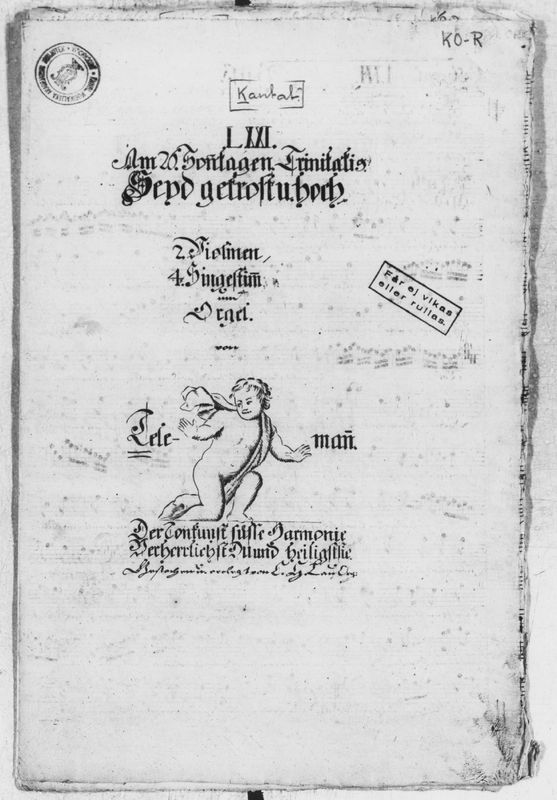 KO-R
Kantat.
LXXI.
Am 20. Sontag n. Trinitatis
Seyd getrost u. hoch
2. Violinen,
4. Singestim̅
Orgel.
von
Tele- man̅.
Får ej vikas
eller rullas.
Der Tonkunst süsse Harmonie
Verherrlichst Du und heiligst sie